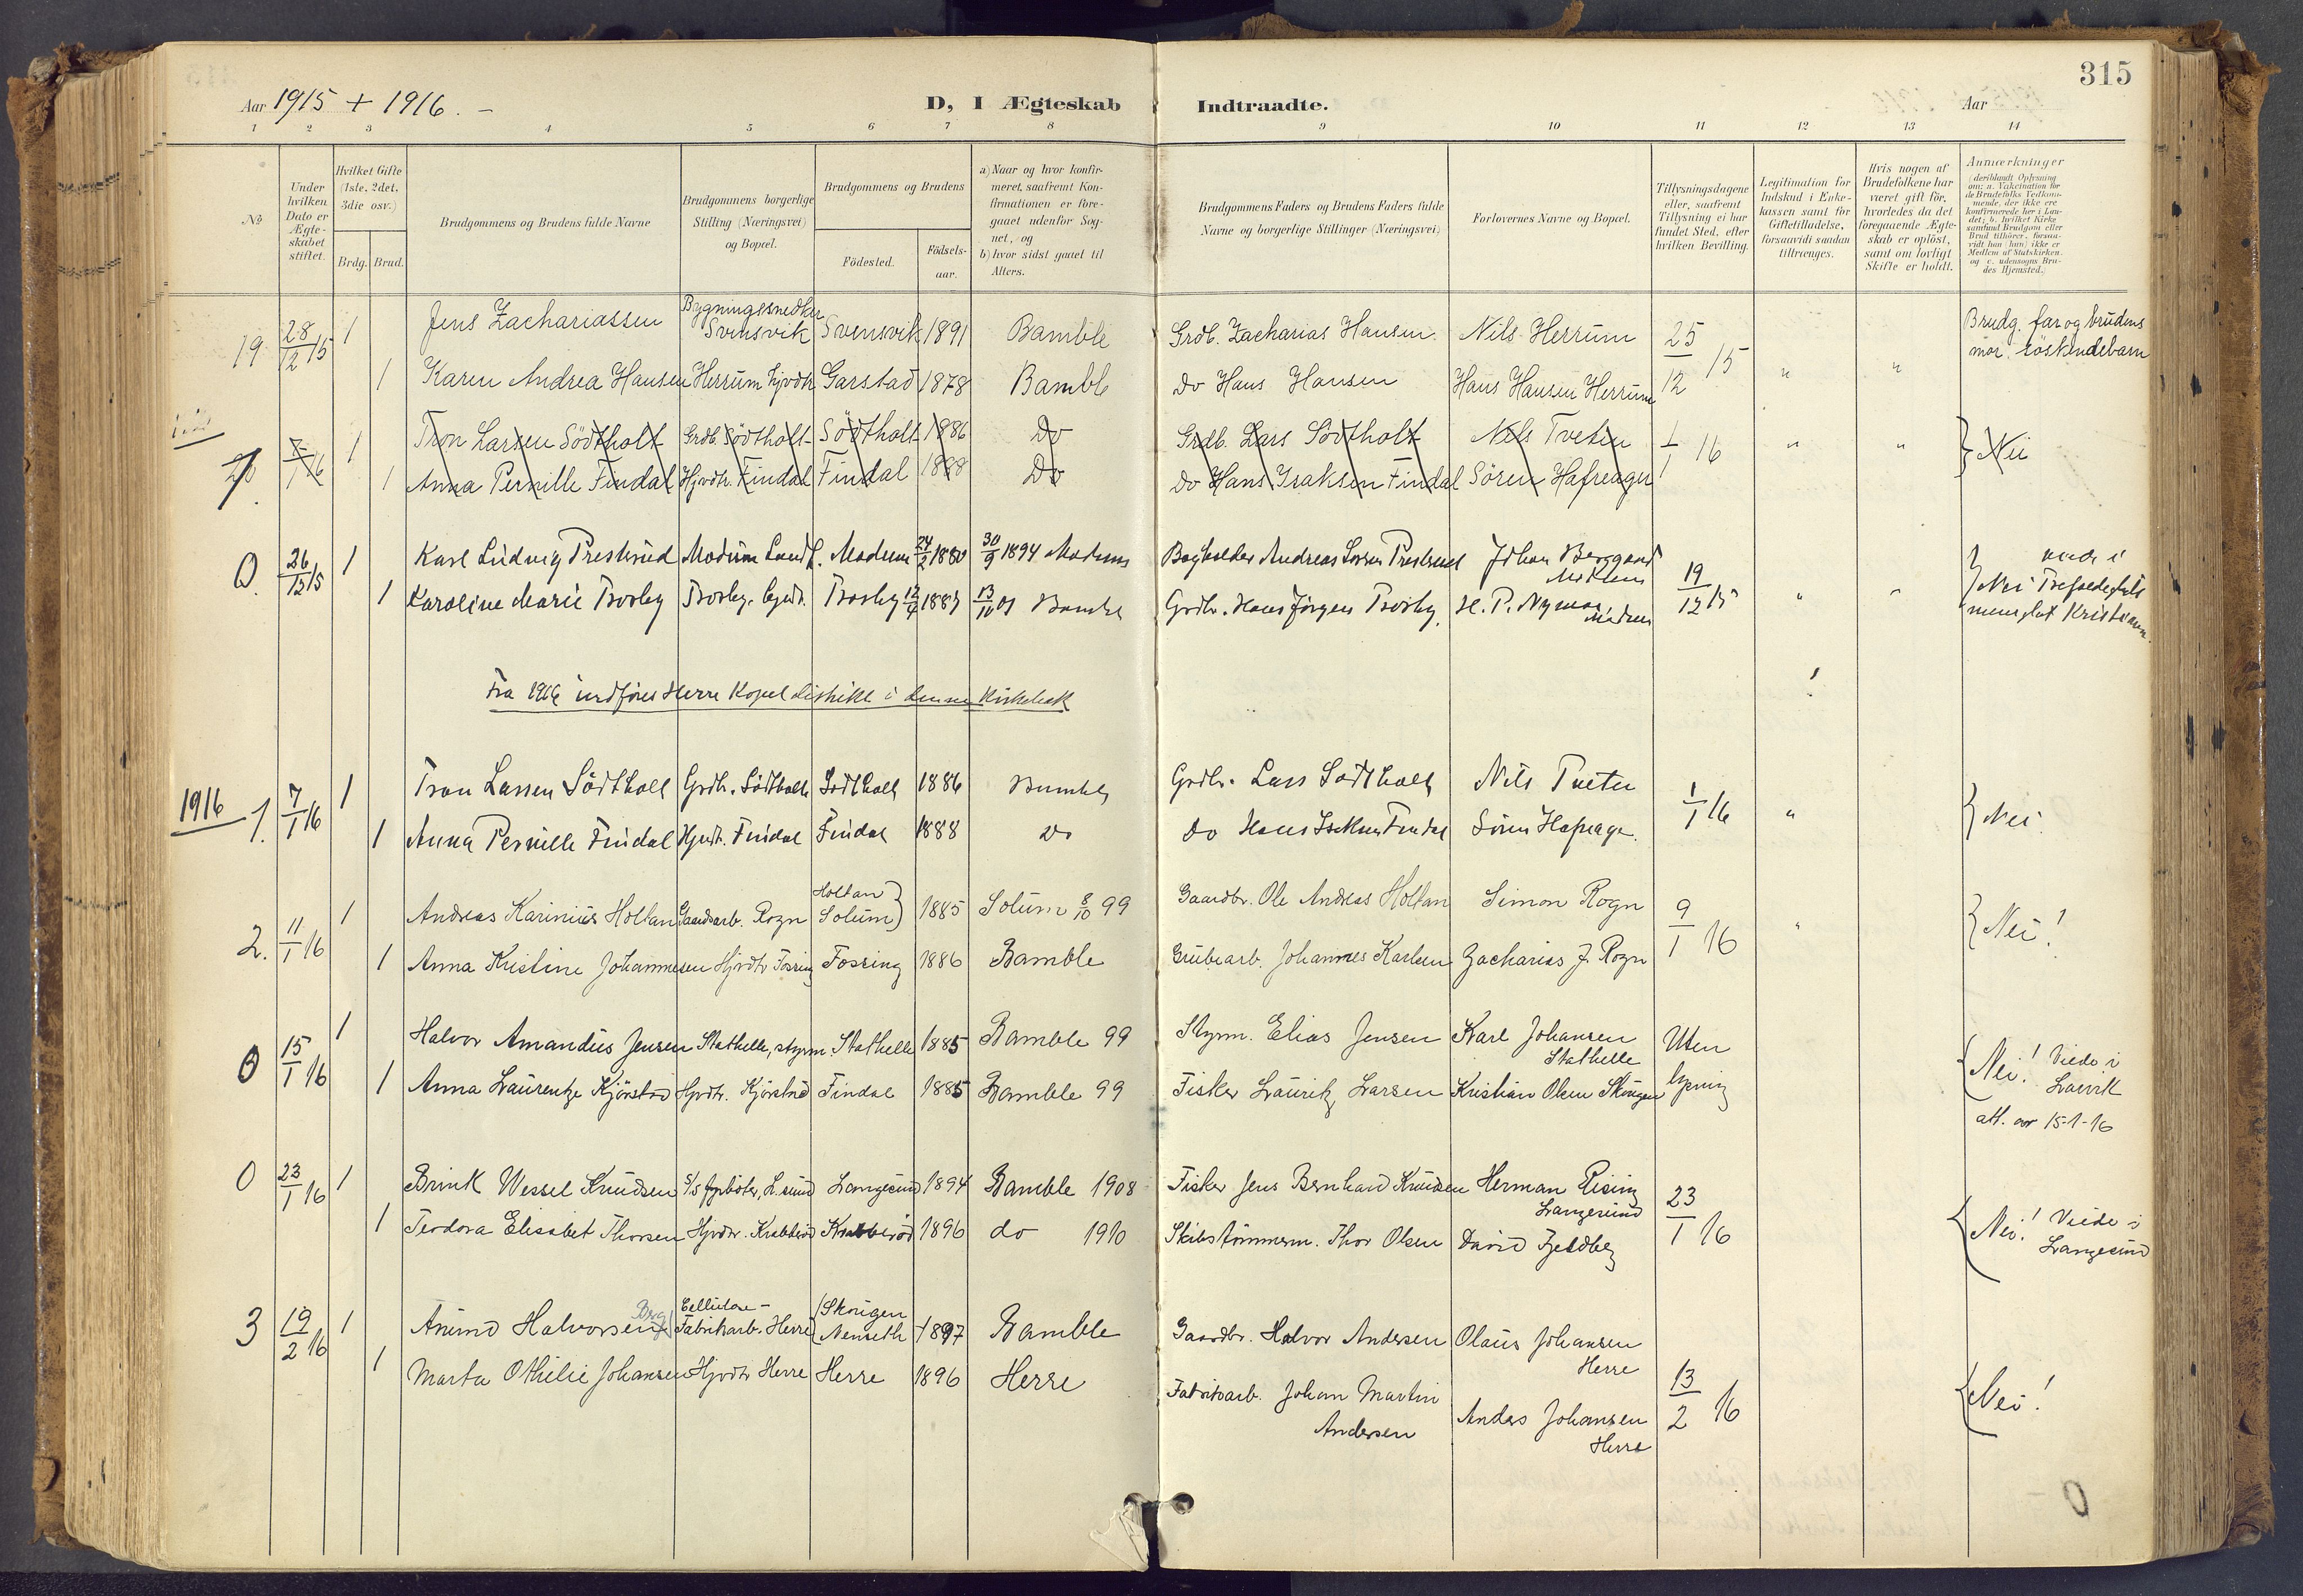 315
Aar 1915 + 1916. –
D, I Ægteskab Indtraadte.
Aar
1 2 3 4 5 6 7 8 9 10 11 12 13 14
No
Under hvilken Dato er Ægteskabet stiftet.
Hvilket Gifte (1ste, 2det, 3die osv.)
Brdg. Brud.
Brudgommens og Brudens fulde Navne
Brudgommens borgerlige Stilling (Næringsvei) og Bopæl.
Brudgommens og Brudens
Födested.
Födsels-aar.
a) Naar og hvor konfir-
meret, saafremt Kon-
firmationen er fore-
gaaet udenfor Sog-
net, og
b) hvor sidst gaaet til
Alters.
Brudgommens Faders og Brudens Faders fulde
Navne og borgerlige Stillinger (Næringsvei)
Forlovernes Navne og Bopæl.
Tillysningsdagene
eller, saafremt
Tillysning ei har
fundet Sted, efter
hvilken Bevilling.
Legitimation for
Indskud i Enke-
kassen samt for
Giftetilladelse,
forsaavidt saadan
tiltrænges.
Hvis nogen af
Brudefolkene har
været gift för,
hvorledes da det
foregaaende Ægte-
skab er oplöst,
samt om lovligt
Skifte er holdt.
Anmærkninger
(deriblandt Oplysning
om: a. Vakcination for
de Brudefolks Vedkom-
mende, der ikke ere
konfirmerede her i Lan-
det; b. hvilket Kirke
samfund Brudgom eller
Brud tilhörer, forsaa-
vidt han (hun) ikke er
Medlem af Statskirken.
og c. udensogns Bru-
des Hjemsted.)
19 28/12 15 1 Jens Zachariassen Bygningssnedker Svensvik Svensvik 1891 Bamble Grdb. Zacharias Hansen. Nils Herrum 25/12 15 " " Brudg. far og brudens mor. söskendebarn
1 Karen Andrea Hansen Herrum Hjvdtr Garstad 1878 Bamble Do Hans Hansen Hans Hansen Herrum
7/1 16 1 Tron Larsen Södtholt Grdb. Södtholt Södtholt 1886 Do Grdb. Lars Södtholt Nils Tveten 1/1 16 " " Nei
1 Anna Pernille Findal Hjvdtr. Findal Findal 1888 Do Do Hans Isaksen Findal Sören Hafreager
0. 26/12 15 1 Karl Ludvig Presterud Modum Modum 24/2 1880 30/9 1894 Modum Andreas Presterud Johan 19/12 15 " " Nei
1 Karoline Marie Trosby Trosby. Trosby 12/9 1887 13/10 01 Bamble Grdbr. Hans Jörgen Trosby. H. P. Modum
Fra 1916 indföres Herre Kapel distrikt i denne Kirkebok
1916 1. 7/1 16 1 Tron Larsen Södtholt Grdb. Södtholt Södtholt 1886 Bamble Grdb. Lars Södtholt Nils Tveten 1/1 16 " Nei
1 Anna Pernille Findal Hjvdtr. Findal Findal 1888 Do Do Hans Isaksen Findal Sören Hafreager.
2. 11/1 16 1 Andreas Karinius Holtan Gaardsarb. Rogn Holtan Solum 1885 Solum 8/10 99 Gaardbr. Ole Andreas Holtan Simon Rogn 9/1 16 " Nei!
1 Anna Kristine Johannesen Hjvdtr Fossing Fossing 1886 Bamble Grubearb. Johannes Karlsen Zacharias J. Rogn
0 15/1 16 1 Halvor Amandus Jensen Stathelle, styrm. Stathelle 1885 Bamble 99 Styrm. Elias Jensen Karl Johansen Stathelle Uten lysning Nei! Viede i Larvik
1 Anna Laurentze Kjörstad Hjvdtr. Kjörstad Findal 1885 Bamble 99 Fisker Lauritz Larsen Kristian Olsen Skougen att. av 15-1-16
0 23/1 16 1 Brink Wessel Knudsen Langesund 1894 Bamble 1908 Fisker Jens Bernhard Knudsen Herman Rising Langesund 23/1 16 Nei! Viede i Langesund
1 Teodora Elisabet Thorsen Hjvdtr. Krabberöd Krabberöd 1896 do 1910 Skibstömmerm. Thor Olsen David Fjeldberg
3 19/2 16 1 Anund Halvorsen Berg Cellulose-Fabrikarb. Herre (Skougen Nenseth 1897 Bamble Gaardbr. Halvor Andersen Olaus Johansen Herre 13/2 16 Nei!
1 Marta Othilie Johansen Hjvdtr Herre Herre 1896 Herre Fabrikarb. Johan Martin Andersen Anders Johansen Herre
0